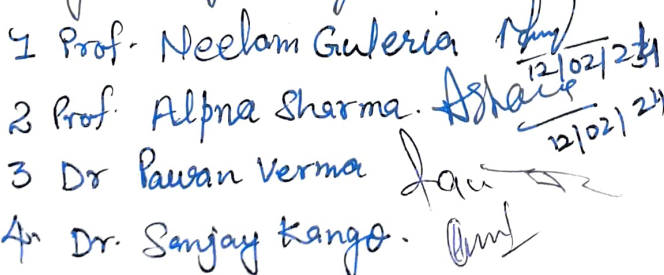 1 Prof. Neelam Guleria
12/02/24
2 Prof. Alpna Sharma. ASharma
12/02/24
3 Dr Pawan Verma
4. Dr. Sanjay Kango.